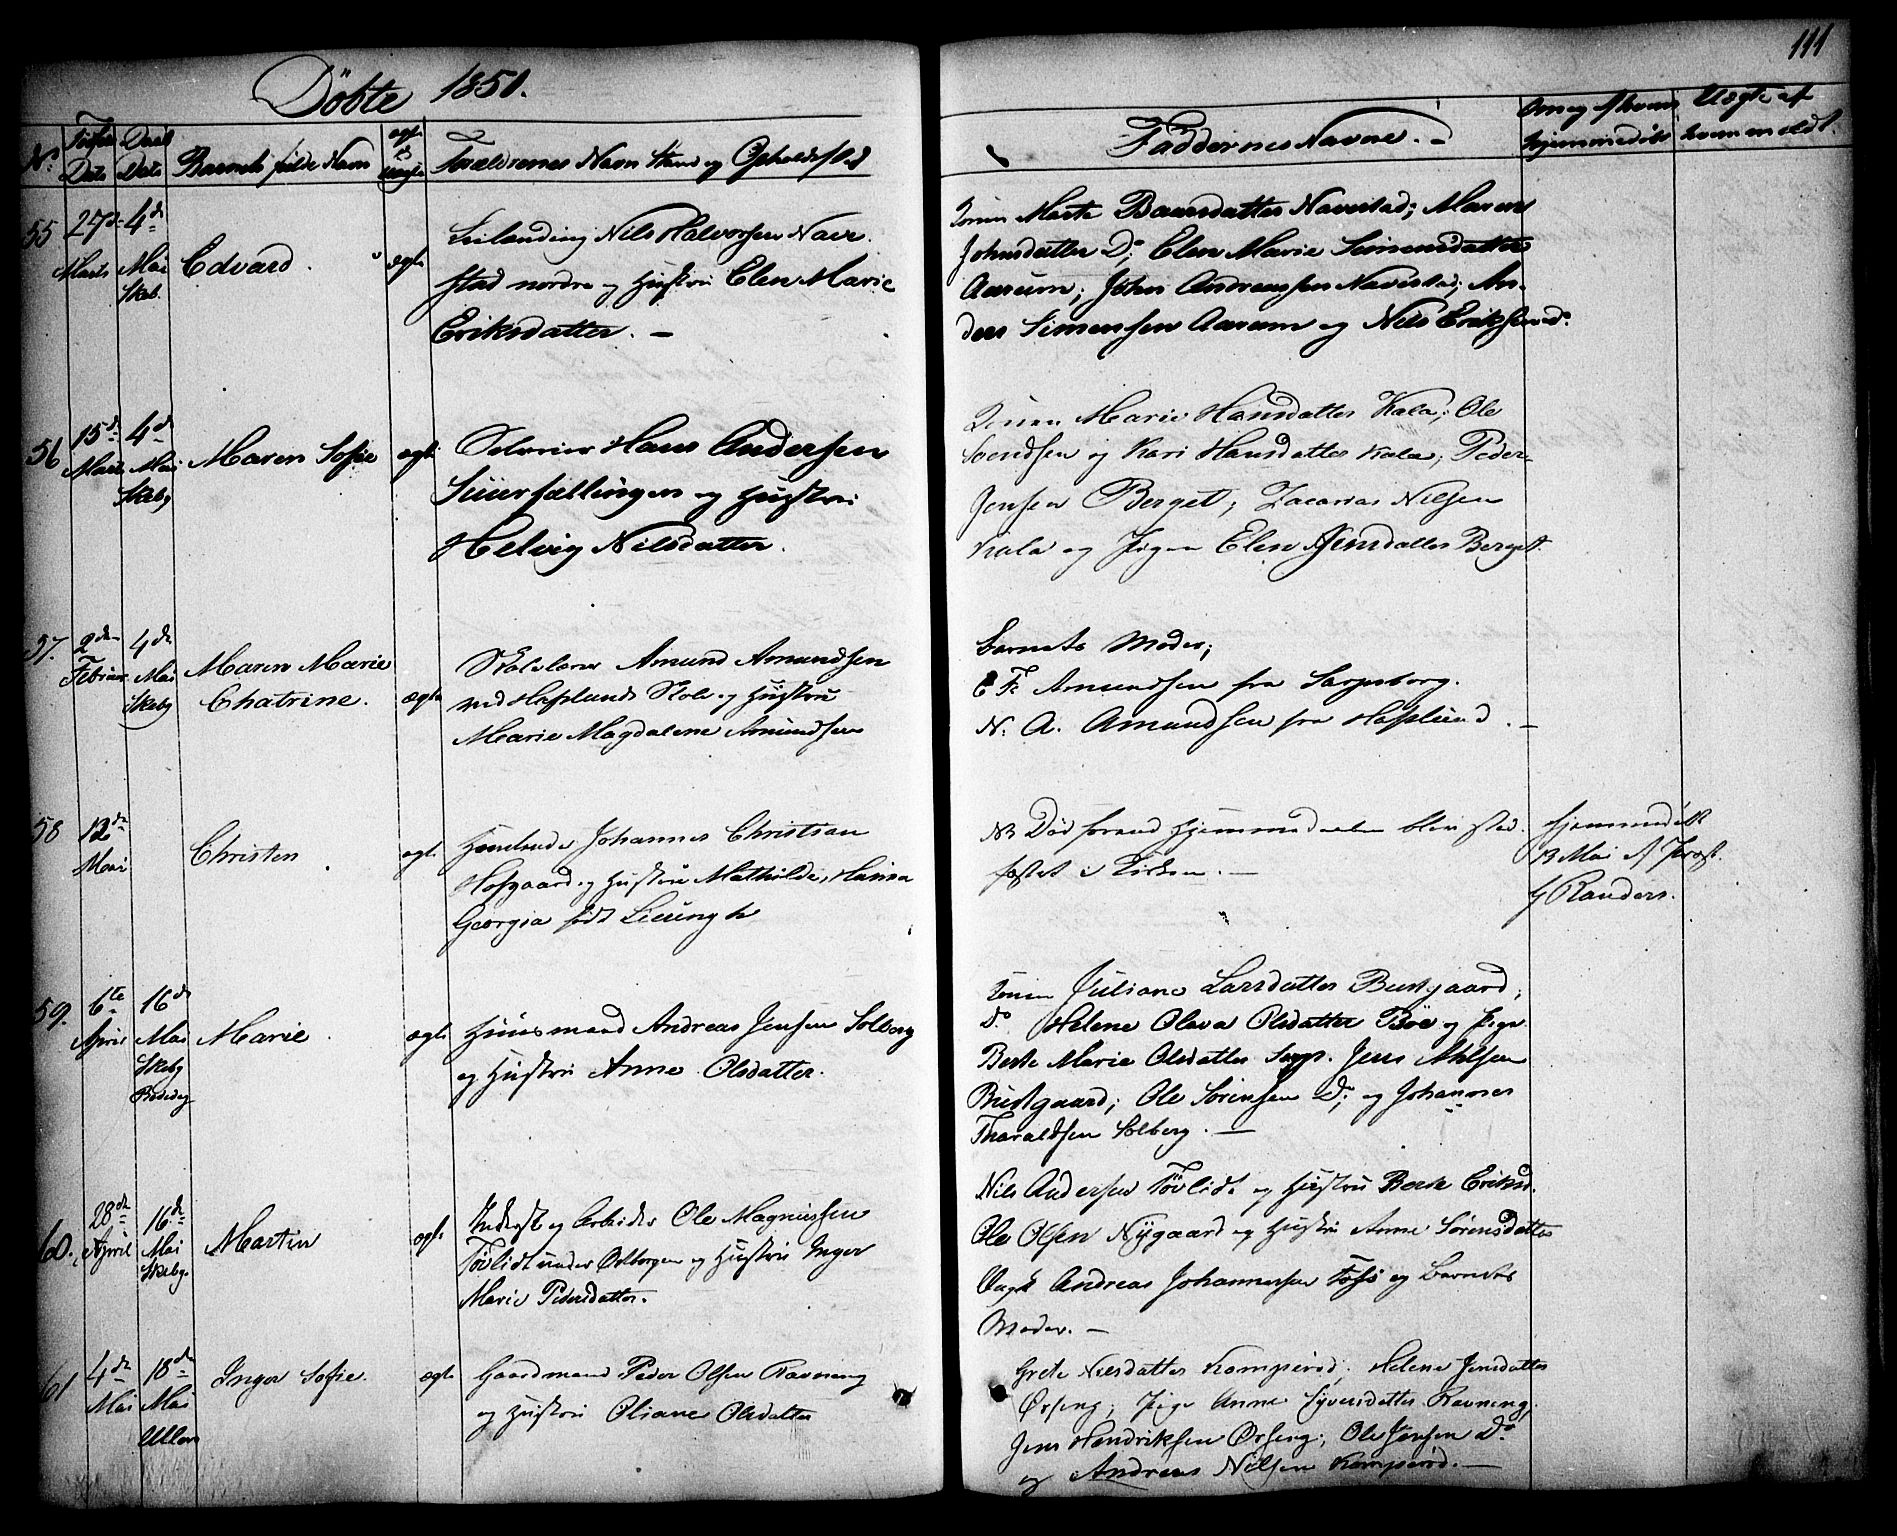 111
Döbte 1851.
No Fødsels Dato Daabs Dato Barnets fulde Navn ægte el. uægte Forældrenes Navn Stand og Opholdssted
Faddernes Navne. Om og af hvem hjemmedöbt Uægte af hvem meldt.
55 27de Marts 4de Mai Skeb. Edvard. ægte
Leilænding Nils Halvorsen Nave-
stad nordre og Hustru Elen Marie
Eriksdatter. —
Konen Marte Baarsdatter Navestad; Maren
Johnsdatter Do; Elen Marie Simensdatter
Aarum; John Andreassen Navestad; An-
ders Simensen Aarum og Nils Eriksen Do.
56 15de Marts 4de Mai Skeby Maren Sofie ægte
Selveier Hans Andersen
og Hustru
Helvig Nilsdatter.
Konen Marie Hansdatter Kala; Ole
Svendsen og Kari Hansdatter Kala; Peder
Jensen Berget; Zacarias Nilsen
Kala og Pige Elen Jensdatter Berget.
57. 2den Februar 4de Mai Skeby Maren Marie
Chatrine. ægte
Skolelærer Amund Amundsen
ved Hafslunds Skole og Hustru
Marie Magdalene Amundsen
Barnets Moder;
C F. Amundsen fra Sarpsborg.
N. A. Amundsen fra Hafslund. —
58 12de Mai Christen ægte
Johannes Christian
Hofgaard og Hustru Mathilde Hansa
Georgia födt
NB Död forend Hjemmedaaben blev stad-
fæstet i Kirken. —
Hjemmedöbt
13 Mai af Provst
Randers.
59. 6te April 16de Mai Skeby Marie. ægte
Huusmand Andreas Jensen Solberg
og Hustru Anne Olsdatter.
Konen Juliane Larsdatter Bustgaard;
Do Helene Olava Olsdatter Böe og Pige
Berte Marie Olsdatter Sarp. Jens
Bustgaard; Ole Sörensen Do; og Johannes
Tharaldsen Solberg. —
60. 28de April 16de Mai Skeby Martin ægte
Inderst og Arbeider Ole Magnussen
Tövlidt under Borgen og Hustru Inger
Marie Pedersdatter.
Nils Andersen Tövlidt og Hustru Berte Eriksd.
Ole Olsen Nygaard og Hustru Anne Sörensdatter
Ungk Andreas Johannesen Foss og Barnets
Moder. —
61 4de Mai 18de Mai Ullerö Inger Sofie. ægte
Gaardmand Peder Olsen Ravneng
og Hustru Oliane Olsdatter
Grete Nilsdatter Kamperöd; Helene Jensdatter
Örseng; Pige Anne Syversdatter Ravneng,
Jens Hendriksen Örseng; Ole Jensen Do
og Andreas Nilsen Kamperöd. —